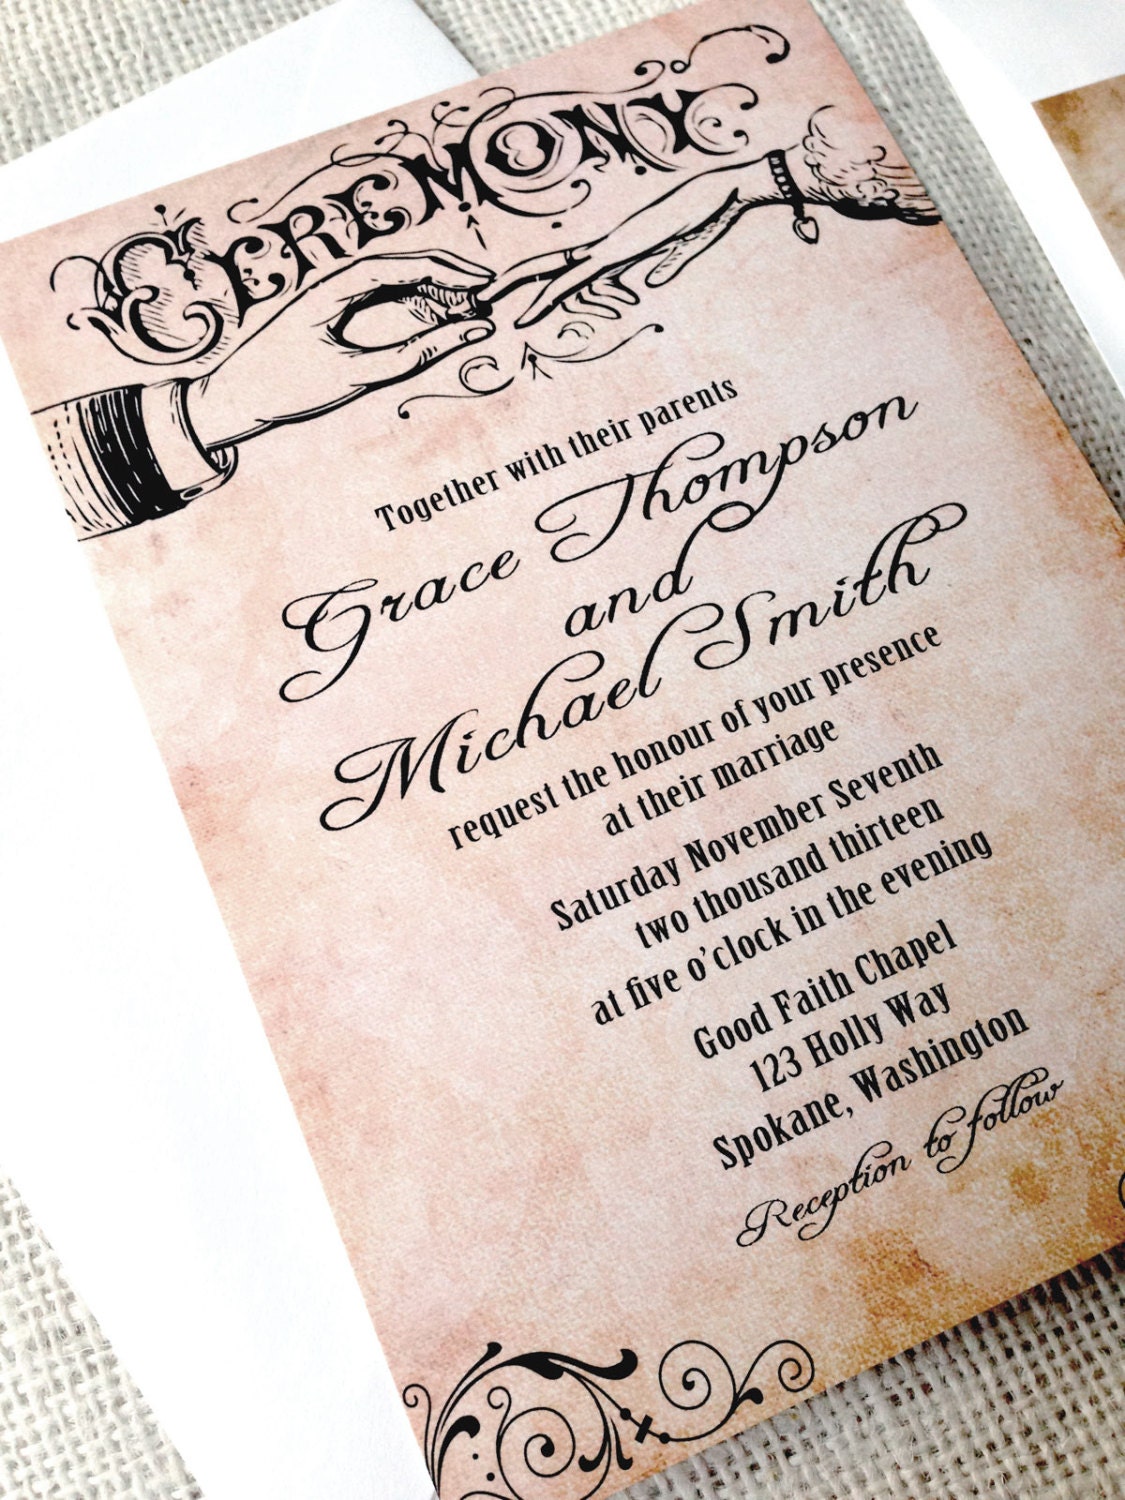 CEREMONY
Together with their parents
Grace Thompson
and
Michael Smith
request the honour of your presence
at their marriage
Saturday November Seventh
two thousand thirteen
at five o'clock in the evening
Good Faith Chapel
123 Holly Way
Spokane, Washington
Reception to follow